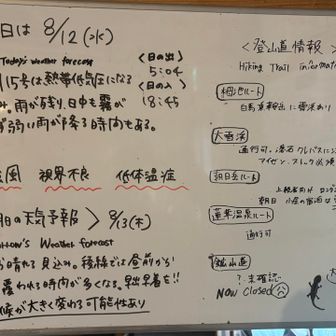 日は 8/12(水)
Today's weather forecast
15号は熱帯低気圧になる
雨が残り、日中も霧が
弱い雨が降る時間もある。
<日の出>
5:04
<日の入>
18:45
視界不良 低体温症
日の天気予報 > 8/13(木)
Tomorrow's Weather forecast
晴れる見込み。後線では昼前から
覆われる時間が多くなる。早出早着を!!
候が大きく変わる可能性あり
<登山道情報>
Hiking Trail informat
栂池ルート
白馬乗鞍岳に雪渓あり
大雪渓
通行可。落石 クレバスに
アイゼン、ストック必
朝日岳ルート
上級者向け ロング
朝日小屋の宿泊は
蓮華温泉ルート
通行可
鉱山道
? 未確認
NOW closed